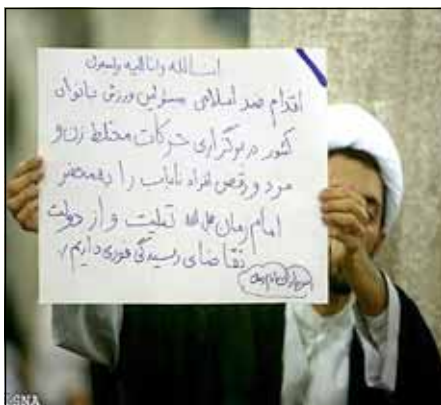 انا لله وانا الیه راجعون
اقدام ضد اسلامی مسئولین ورزش بانوان
کشور در برگزاری حرکات مختلط زن و
مرد و رقص افراد ناباب را به محضر
امام زمان تسلیت و از دولت
تقاضای رسیدگی فوری داریم
ISNA